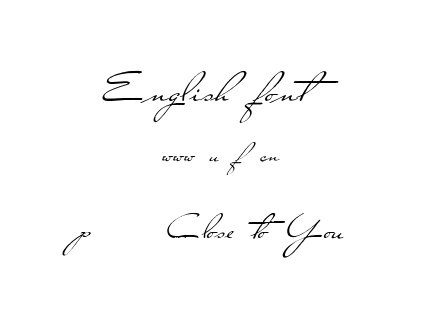 English font
www u f cn
p Close to You